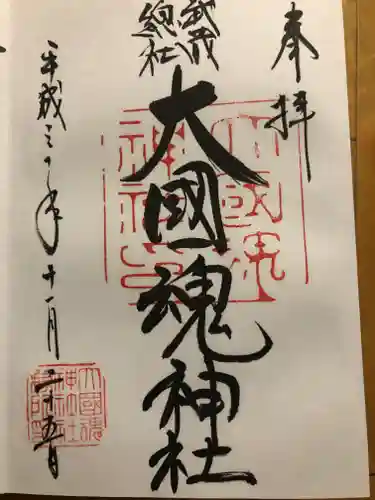 奉拝
武蔵
總社
大國魂神社
平成三十年十一月二十五日
大國魂
神社印